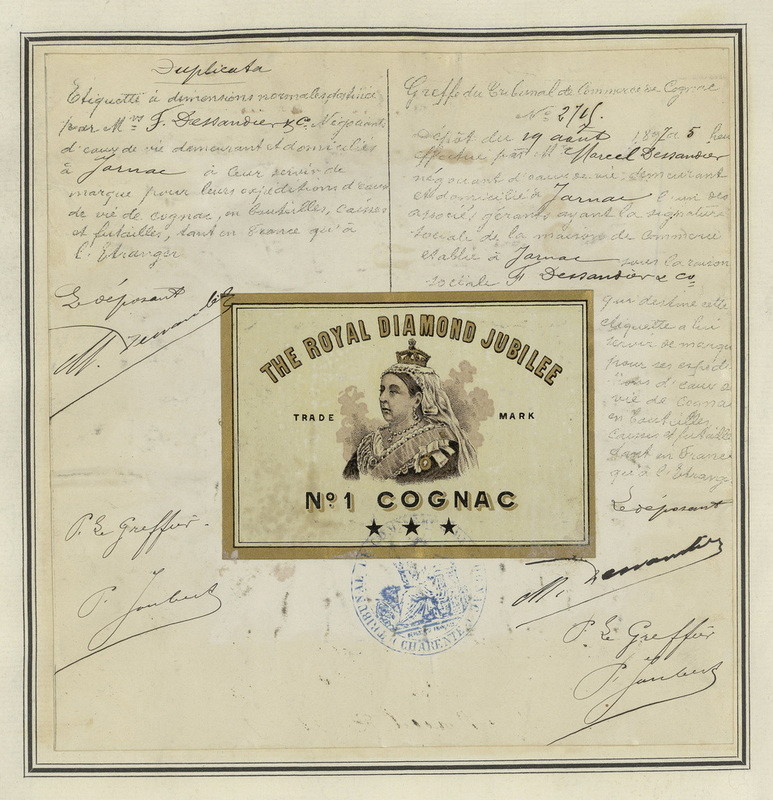 Duplicata
Etiquette à dimensions normales, destinée
par M.rs F. Dessandier & C.o Négociants
d'eaux de vie demeurant et domiciliés
à Jarnac à leur servir de
marque pour leurs expéditions d'eaux
de vie de cognac, en bouteilles, caisses
et futailles, tant en France qu'à
l'Etranger
Le déposant
M. Dessandier
P. Le Greffier.
P. Joubert
Greffe du Tribunal de Commerce de Cognac
N.o 2715.
Dépôt du 19 août 1897 à 5 heu
effectué par M. Marcel Dessandier
négociant d'eaux de vie demeurant
et domicilié à Jarnac l'un des
associés gérants ayant la signature
sociale de la maison de commerce
établie à Jarnac sous la raison
sociale F. Dessandier & Co
qui destine cette
étiquette à lui
servir de marque
pour ses expédi
tions d'eaux de
vie de Cognac
en bouteilles,
caisses et futailles
tant en France
qu'à l'Etranger
Le déposant
M. Dessandier
P. Le Greffier
P. Joubert
THE ROYAL DIAMOND JUBILEE
TRADE MARK
No 1 COGNAC
TRIBUNAL DE COMMERCE
(CHARENTE)